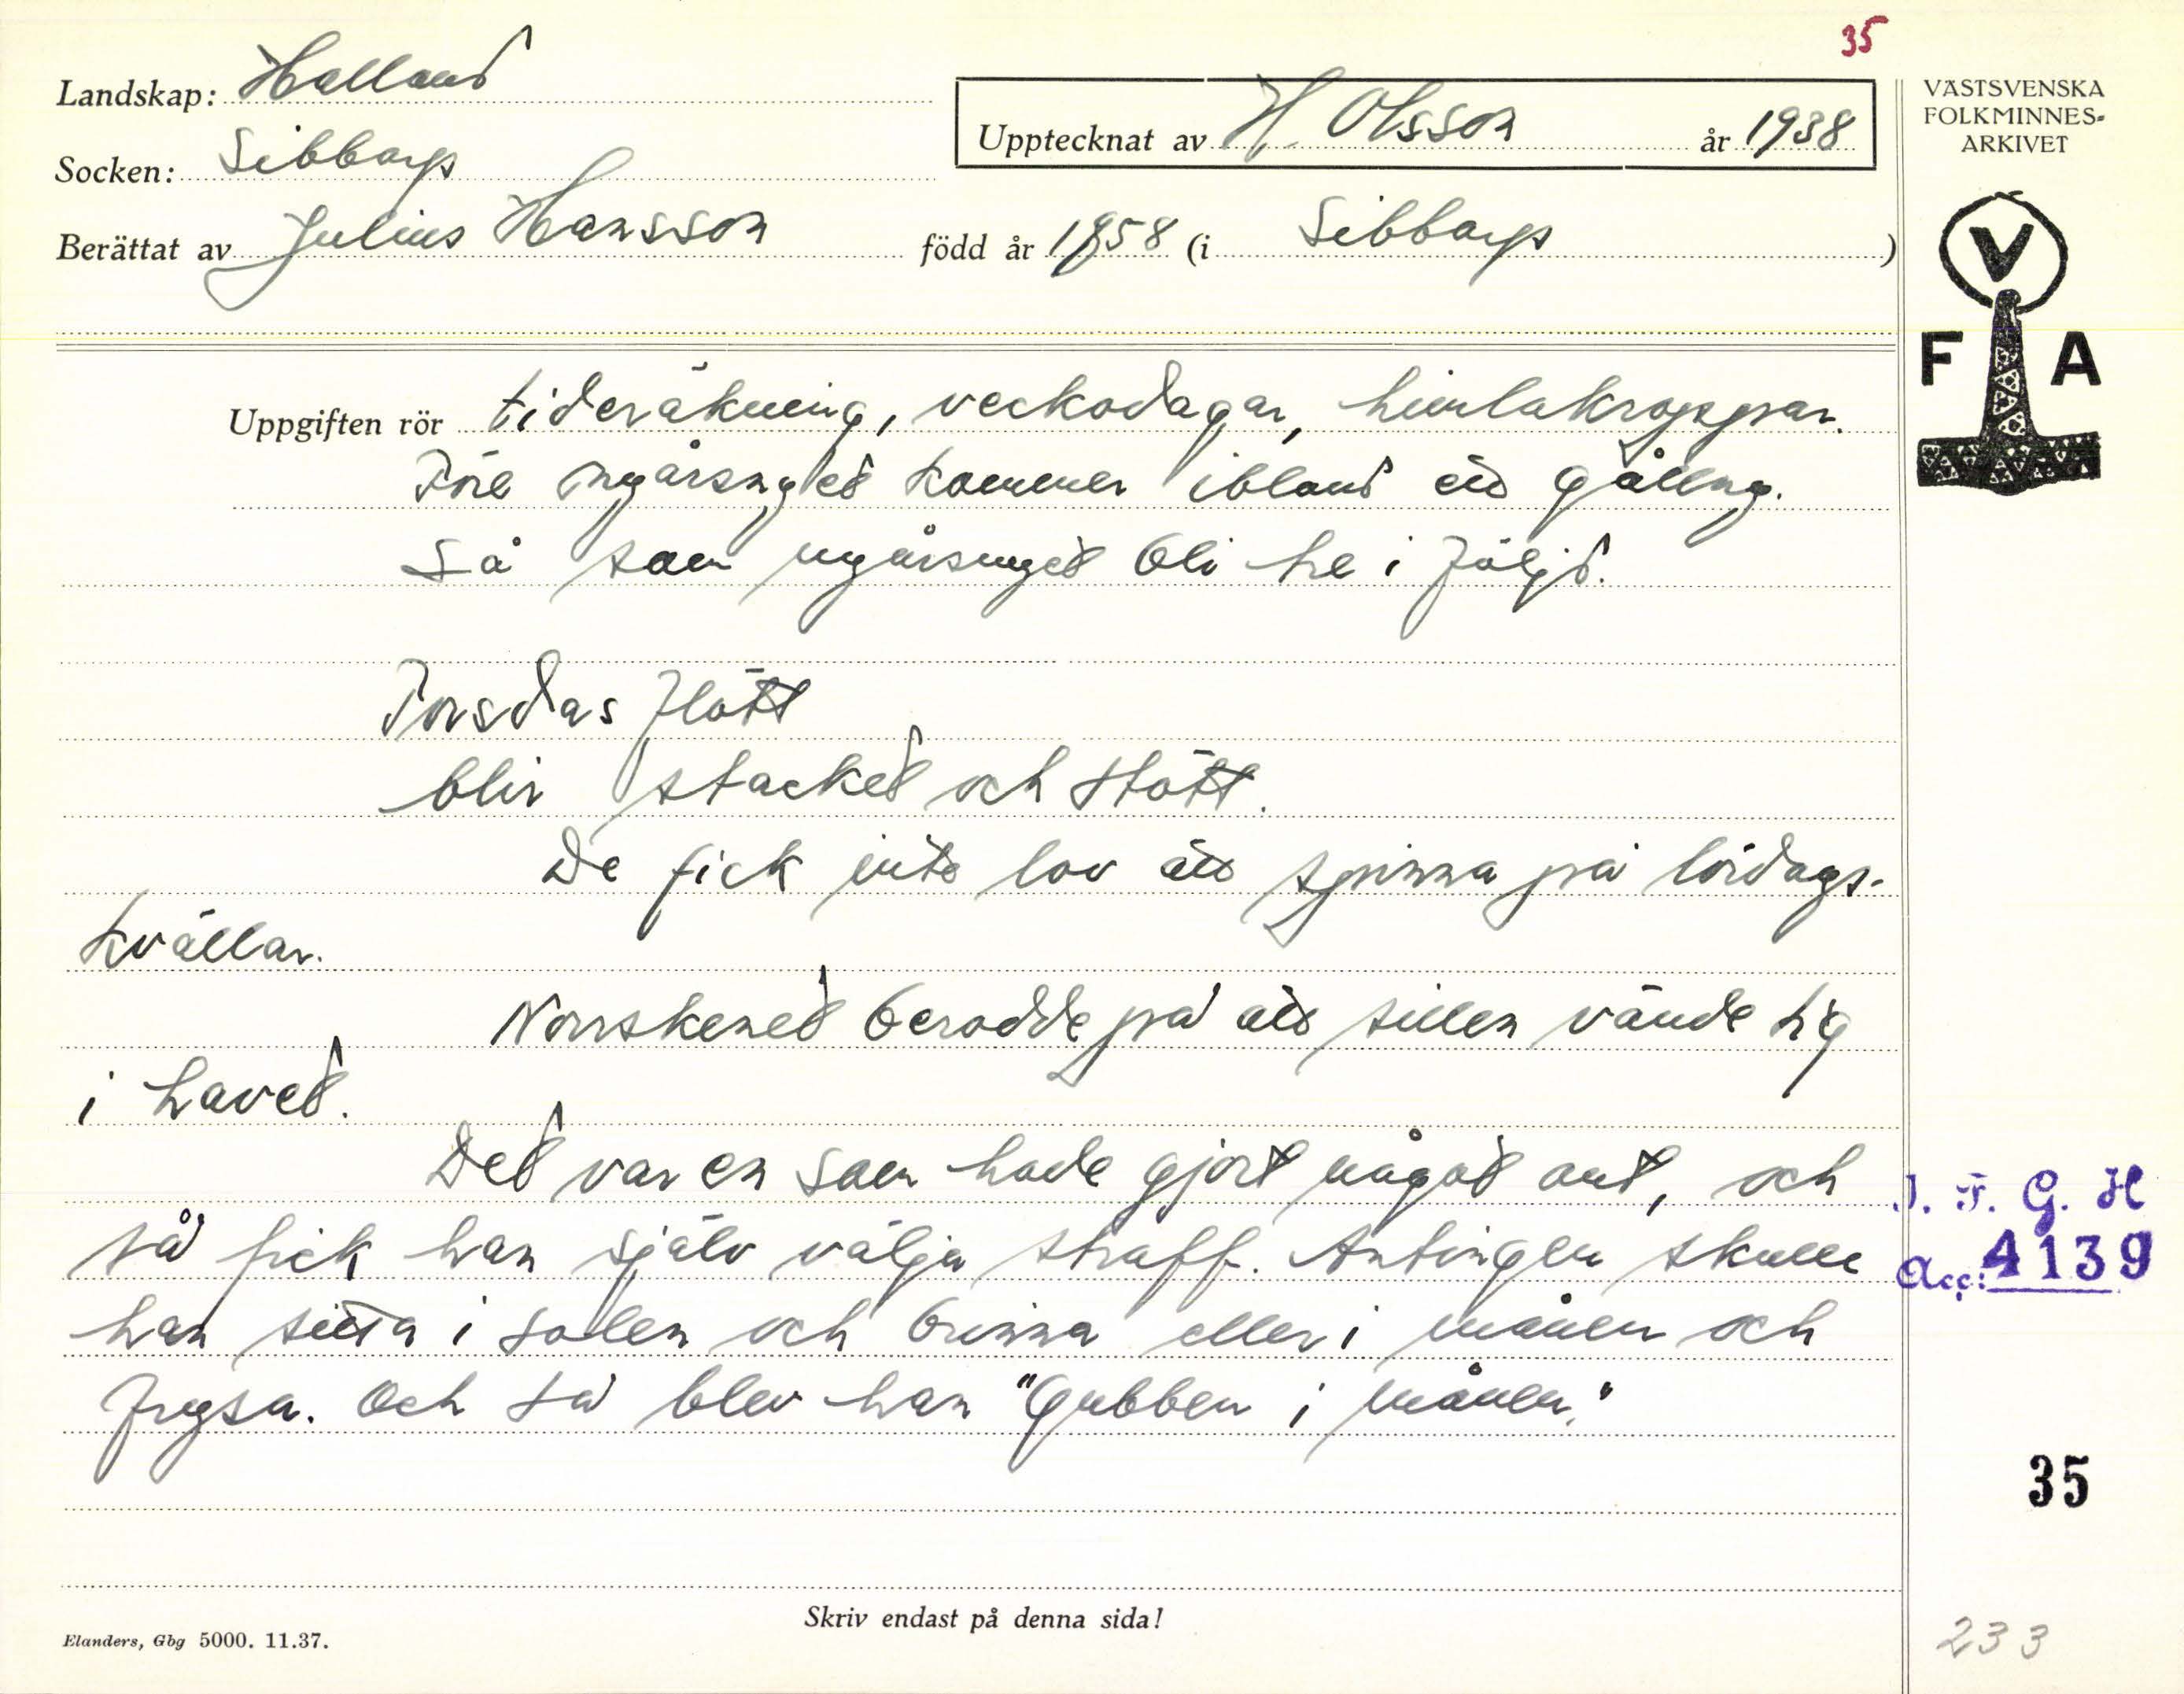 35
Landskap: Halland
Upptecknat av H. Olsson år 1938
VÄSTSVENSKA
FOLKMINNES-
ARKIVET
Socken: Sibbarp
Berättat av Julius Hansson född år 1858 (i Sibbarp)
V
F A
Uppgiften rör tideräkning, veckodagar, himlakroppar.
Före nyårsnyet kommer ibland ett gålling.
Så som nyårsnyet bli he i följd.
Torsdas flött
blir stacket och stött.
De fick inte lov att spinna på lördags-
kvällar.
Norrskenet berodde på att sillen vände sig
i havet.
Det var en som hade gjort något ont, och
så fick han själv välja straff. Antingen skulle
han sitta i solen och brinna eller i månen och
frysa. Och så blev han "Gubben i månen."
I. F. G. H
Acc: 4139
35
Skriv endast på denna sida!
Elanders, Gbg 5000. 11.37.
233